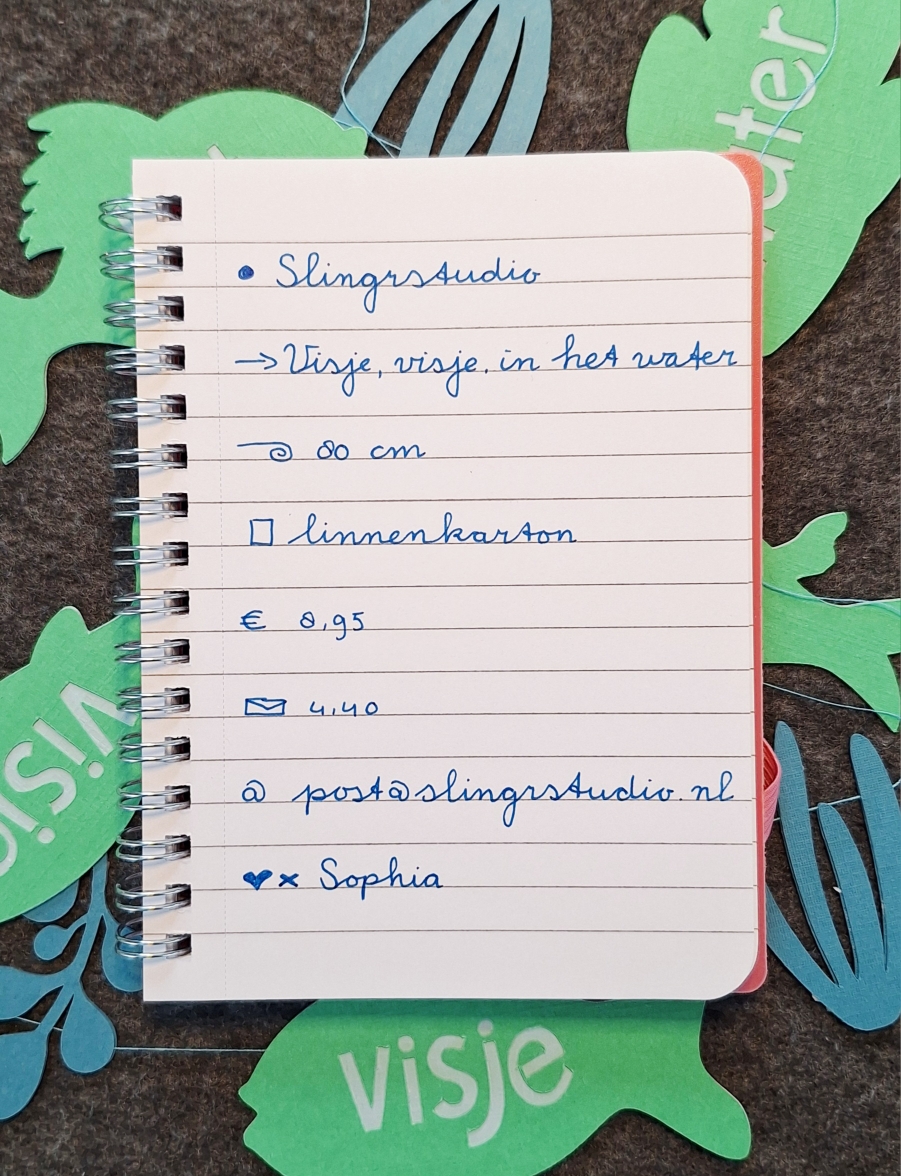 ater
• Slingrstudio
→ Visje, visje, in het water
80 cm
linnenkarton
€ 8,95
4,40
@ post@slingrstudio.nl
♥× Sophia
visje
visje